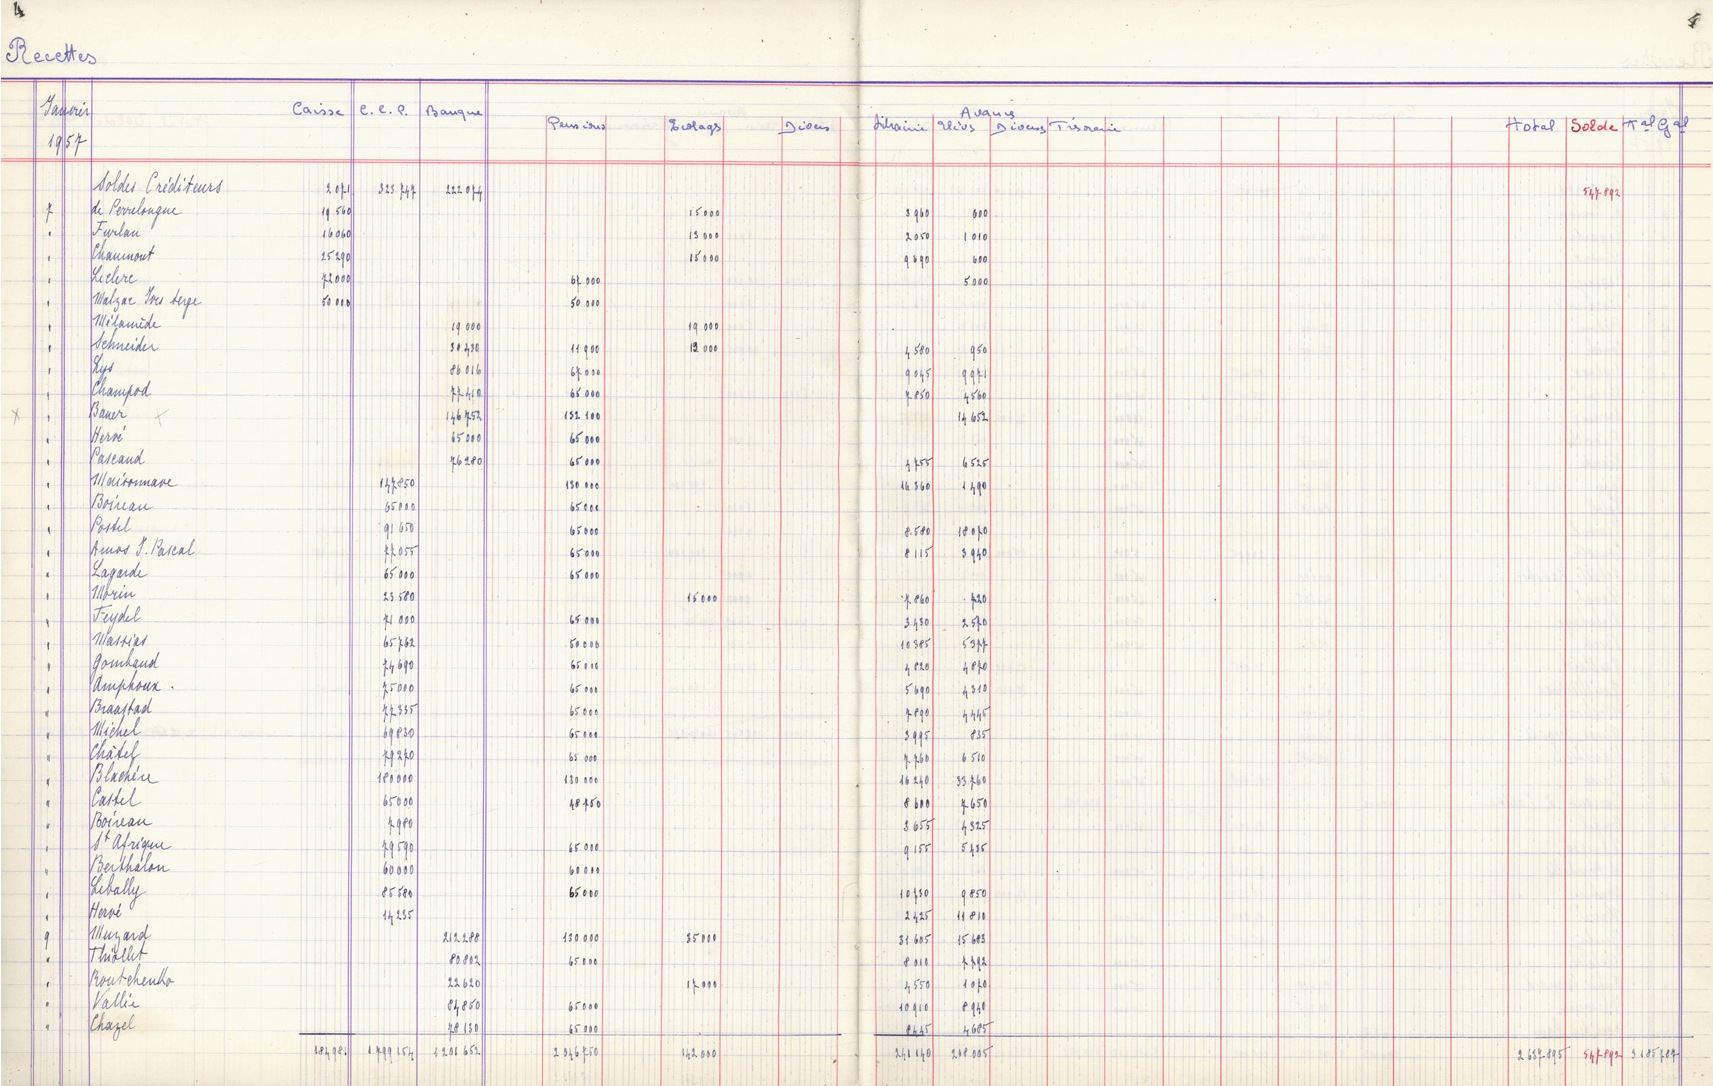 4
5
Recettes
Janvier Caisse C.C.P. Banque Avances
Pensions Ecolages Divers Librairie Elèves Divers Trésorerie Total Solde Tal Gal
1957
Soldes Créditeurs 2 071 323 747 222 074 547 892
7 de Perrelongue 19 560 15 000 3 960 600
" Furlan 16 060 13 000 2 050 1 010
" Chaumont 25 290 15 000 9 690 600
" Leclerc 72 000 67 000 5 000
" Malzac Yves serge 50 000 50 000
" Mélamède 19 000 19 000
" Schneider 30 430 11 900 13 000 4 580 950
" Lys 86 016 67 000 9 045 9 971
" Champod 77 410 65 000 7 850 4 560
x " Bauer x 146 752 132 100 14 652
" Hervé 65 000 65 000
" Pascaud 76 280 65 000 4 755 6 525
" Maisonnave 147 850 130 000 16 360 1 490
" Boireau 65 000 65 000
" Postel 91 650 65 000 8 580 18 070
" Amos J. Pascal 77 055 65 000 8 115 3 940
" Lagarde 65 000 65 000
" Morin 23 580 15 000 7 860 720
" Feydel 71 000 65 000 3 430 2 570
" Massias 65 762 50 000 10 385 5 377
" Gombaud 74 690 65 000 4 820 4 870
" Amphoux . 75 000 65 000 5 690 4 310
" Braastad 77 335 65 000 7 890 4 445
" Michel 69 830 65 000 3 995 835
" Châtef 79 270 65 000 7 760 6 510
" Blachère 180 000 130 000 16 240 33 760
" Castel 65 000 48 750 8 600 7 650
" Boireau 7 980 3 655 4 325
" St Afrique 79 590 65 000 9 155 5 435
" Berthalon 60 000 60 000
" Lebally 85 580 65 000 10 730 9 850
" Hervé 14 235 2 425 11 810
9 Muzard 212 288 130 000 35 000 31 605 15 683
" Thiollet 80 802 65 000 8 010 7 792
" Boutchenko 22 620 17 000 4 550 1 070
" Vallie 84 850 65 000 10 910 8 940
" Chazel 78 130 65 000 8 445 4 685
184 981 1 799 154 1 201 652 2 046 750 142 000 241 140 208 005 2 637 895 547 892 3 185 787